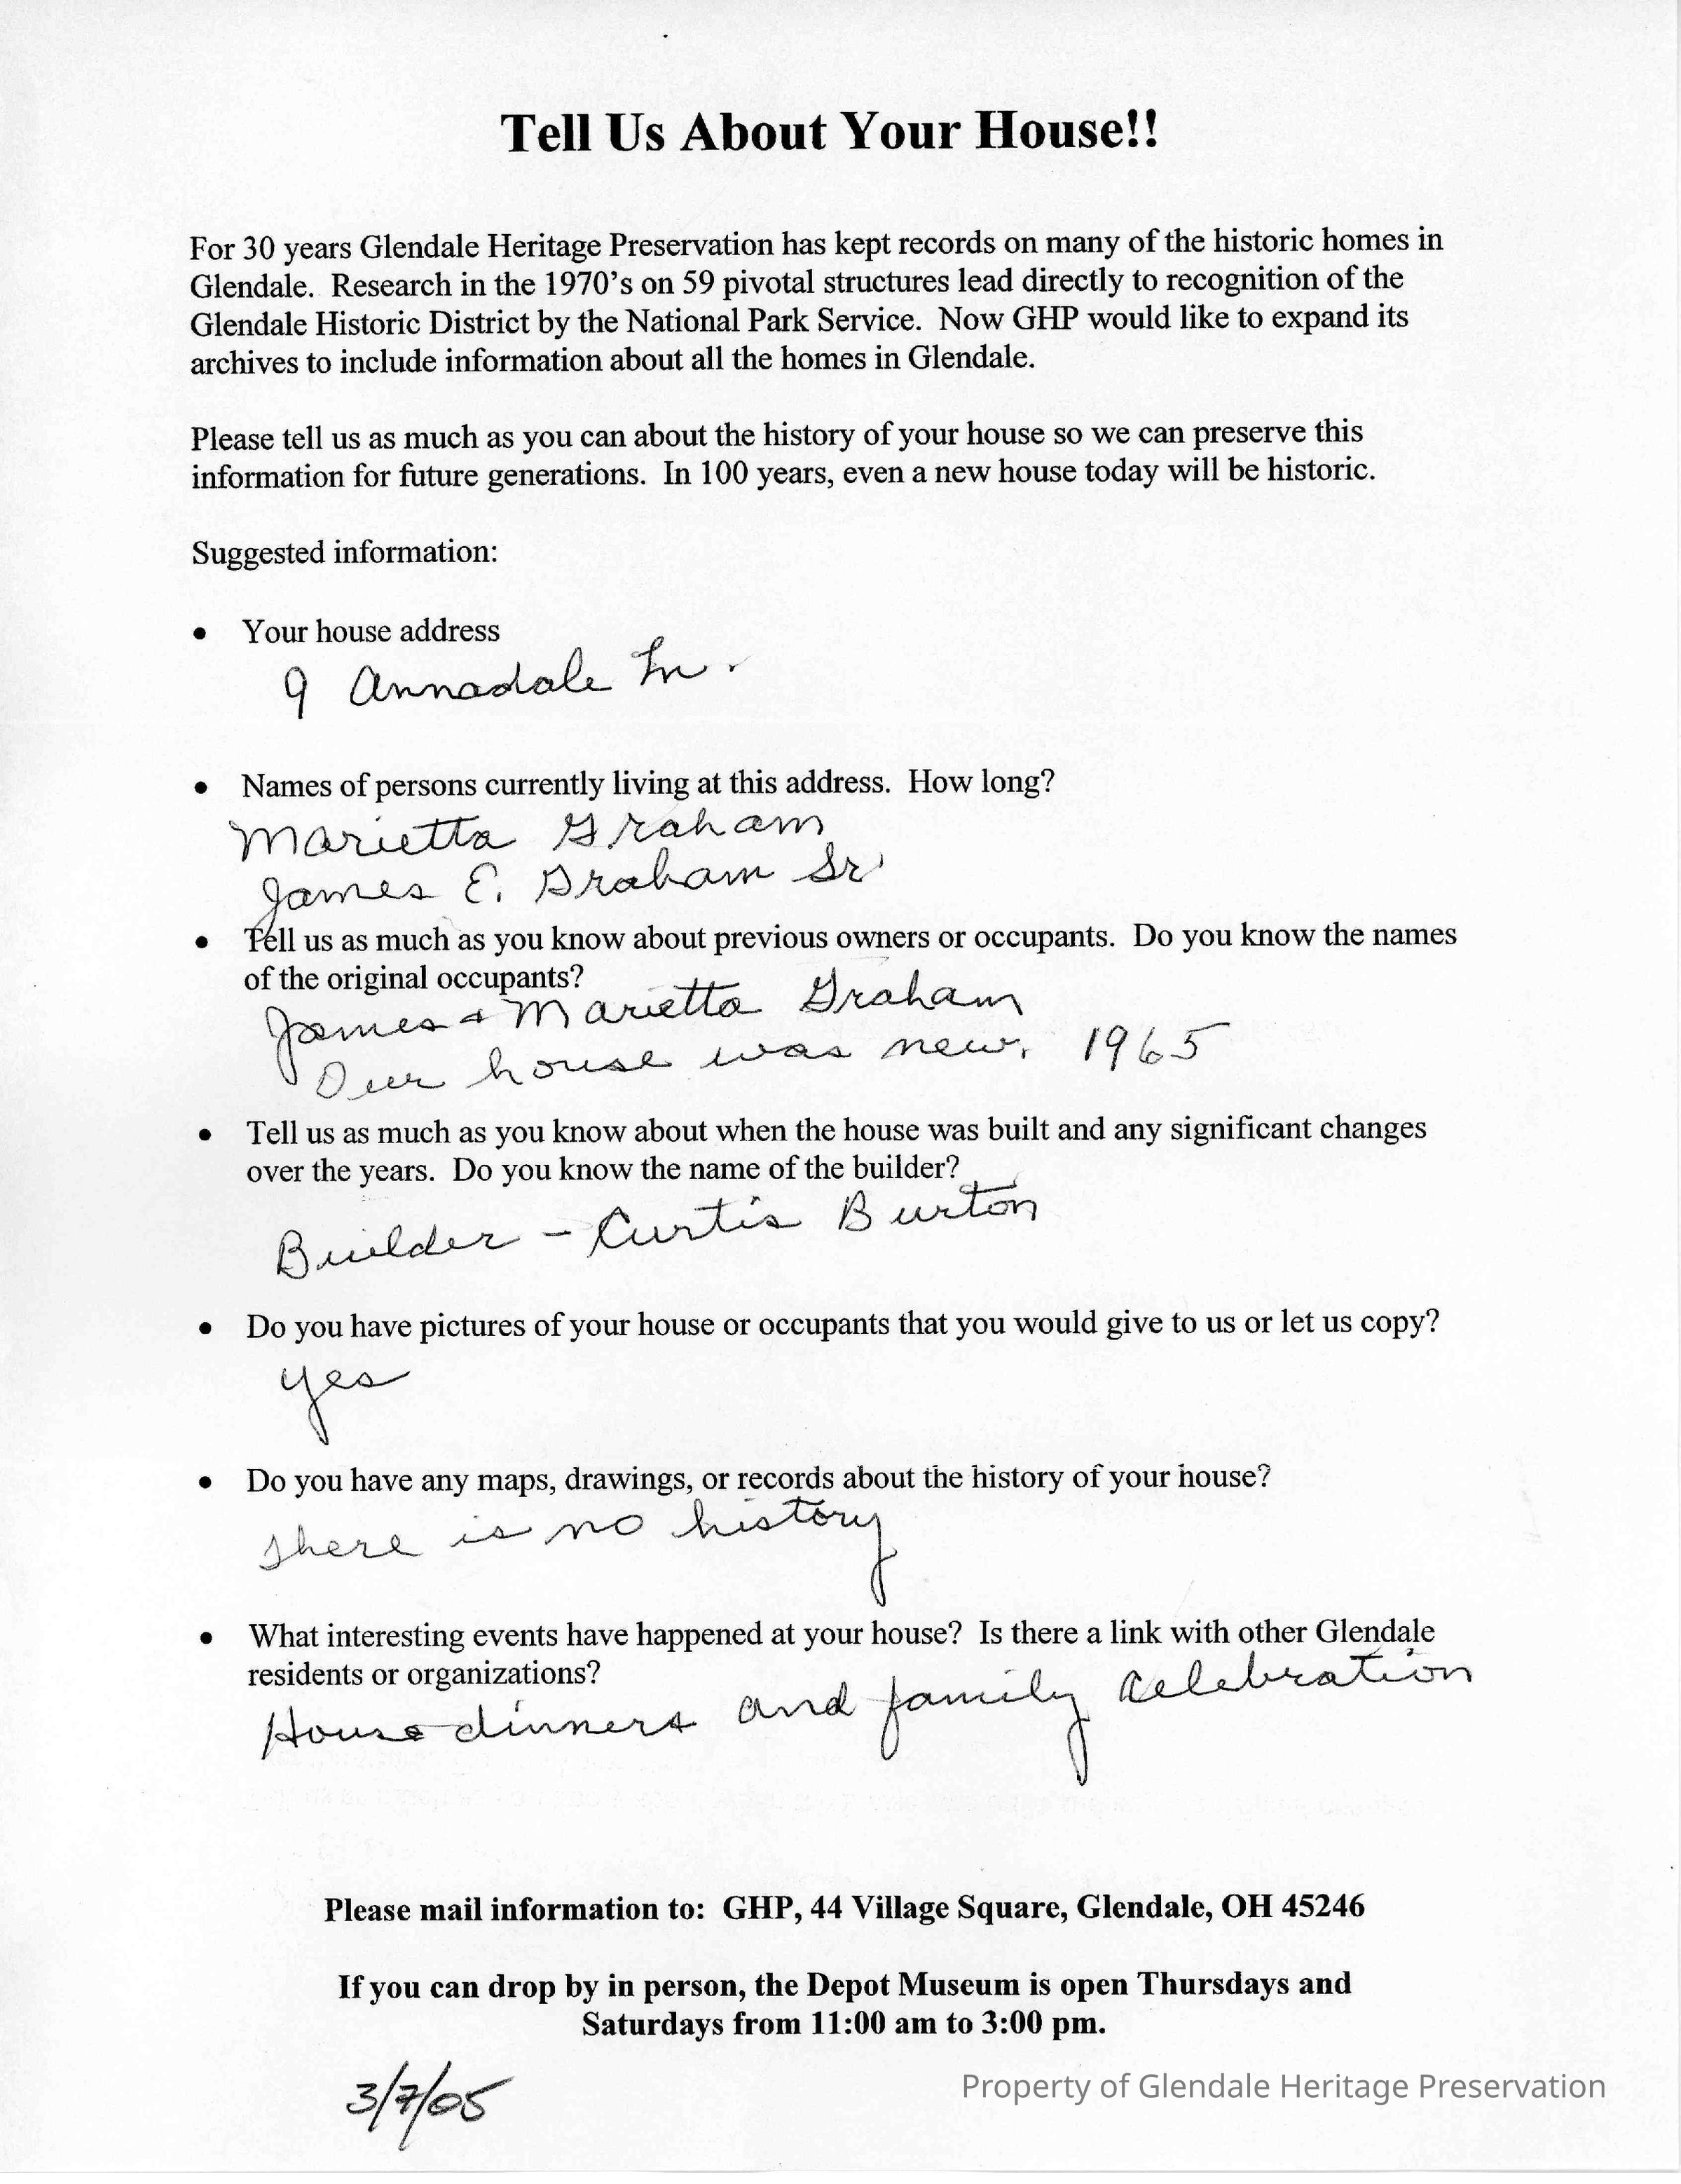 Tell Us About Your House!!
For 30 years Glendale Heritage Preservation has kept records on many of the historic homes in
Glendale. Research in the 1970's on 59 pivotal structures lead directly to recognition of the
Glendale Historic District by the National Park Service. Now GHP would like to expand its
archives to include information about all the homes in Glendale.
Please tell us as much as you can about the history of your house so we can preserve this
information for future generations. In 100 years, even a new house today will be historic.
Suggested information:
• Your house address
9 Annadale Ln.
• Names of persons currently living at this address. How long?
Marietta Graham
James E. Graham Sr
• Tell us as much as you know about previous owners or occupants. Do you know the names
of the original occupants?
James + Marietta Graham
Our house was new. 1965
• Tell us as much as you know about when the house was built and any significant changes
over the years. Do you know the name of the builder?
Builder - Curtis Burton
• Do you have pictures of your house or occupants that you would give to us or let us copy?
yes
• Do you have any maps, drawings, or records about the history of your house?
There is no history
• What interesting events have happened at your house? Is there a link with other Glendale
residents or organizations?
House dinners and family celebration
Please mail information to: GHP, 44 Village Square, Glendale, OH 45246
If you can drop by in person, the Depot Museum is open Thursdays and
Saturdays from 11:00 am to 3:00 pm.
3/7/05
Property of Glendale Heritage Preservation